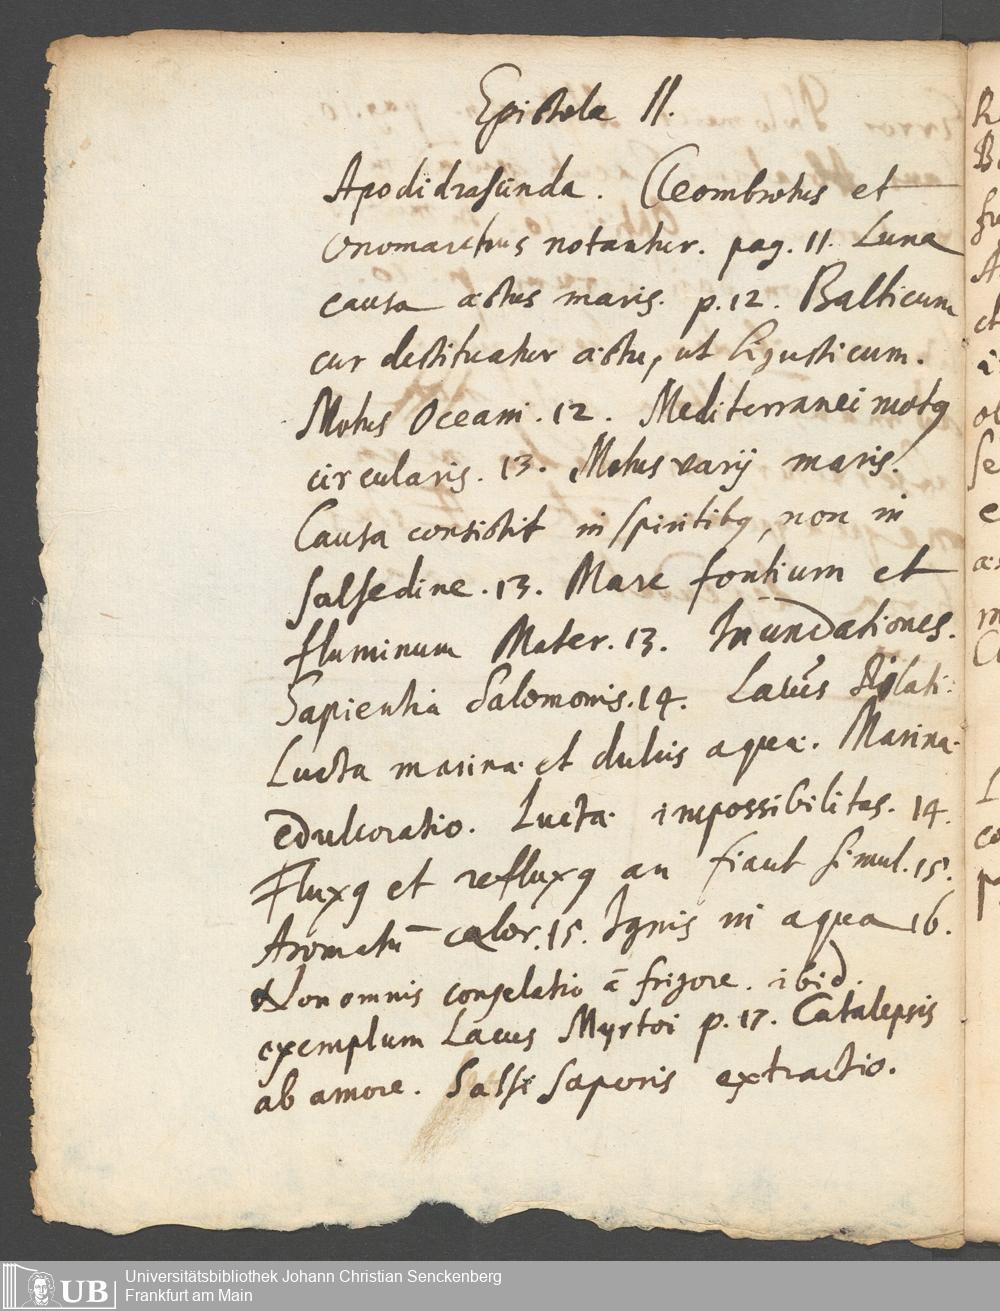 Epistola II.
Apodidrasunda. Cleombrotus et
Onomacritus notantur. pag. 11. Luna
causa æstus maris. p. 12. Balticum
cur destituatur æstu, ut Ligusticum.
Motus Oceani. 12. Mediterranei motq
circularis. 13. Motus varij maris.
Causa consistit in spiritibq, non in
salsedine. 13. Mare fontium et
fluminum Mater. 13. Inundationes.
Sapientia Salomonis. 14. Lacus
Lucta marinæ et dulcis aquæ. Marinæ
edulcoratio. Luctæ impossibilitas. 14.
Fluxq et refluxq an fiant simul. 15.
Aromatū calor. 15. Ignis in aqua 16.
Non omnis congelatio a frigore. ibid.
exemplum Lacus Myrtoi p. 17. Catalepsis
ab amore. Salsi saporis extractio.
UB
Universitätsbibliothek Johann Christian Senckenberg
Frankfurt am Main